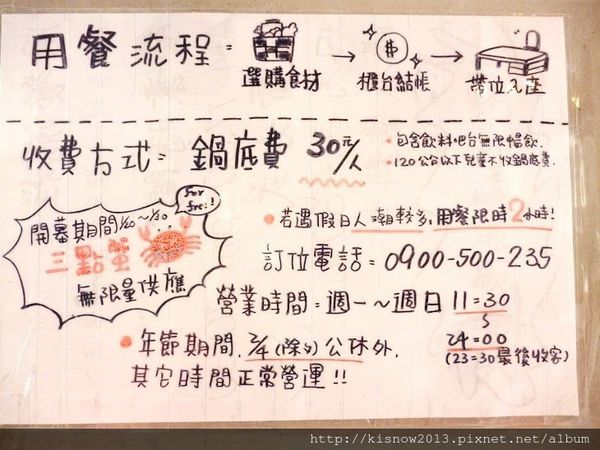 用餐流程=
選購食材 → 櫃台結帳 → 帶位入座
收費方式= 鍋底費 30元/人
•包含飲料吧台無限暢飲.
•120公分以下兒童不收鍋底費.
for free!
開幕期間1/20~1/30
三點蟹
無限量供應
•若遇假日人潮較多,用餐限時2小時!
訂位電話=0900-500-235
營業時間=週一~週日 11=30
24=00
(23=30最後收客)
•年節期間,2/4(除夕)公休外,
其它時間正常營運!!
http://kisnow2013.pixnet.net/album